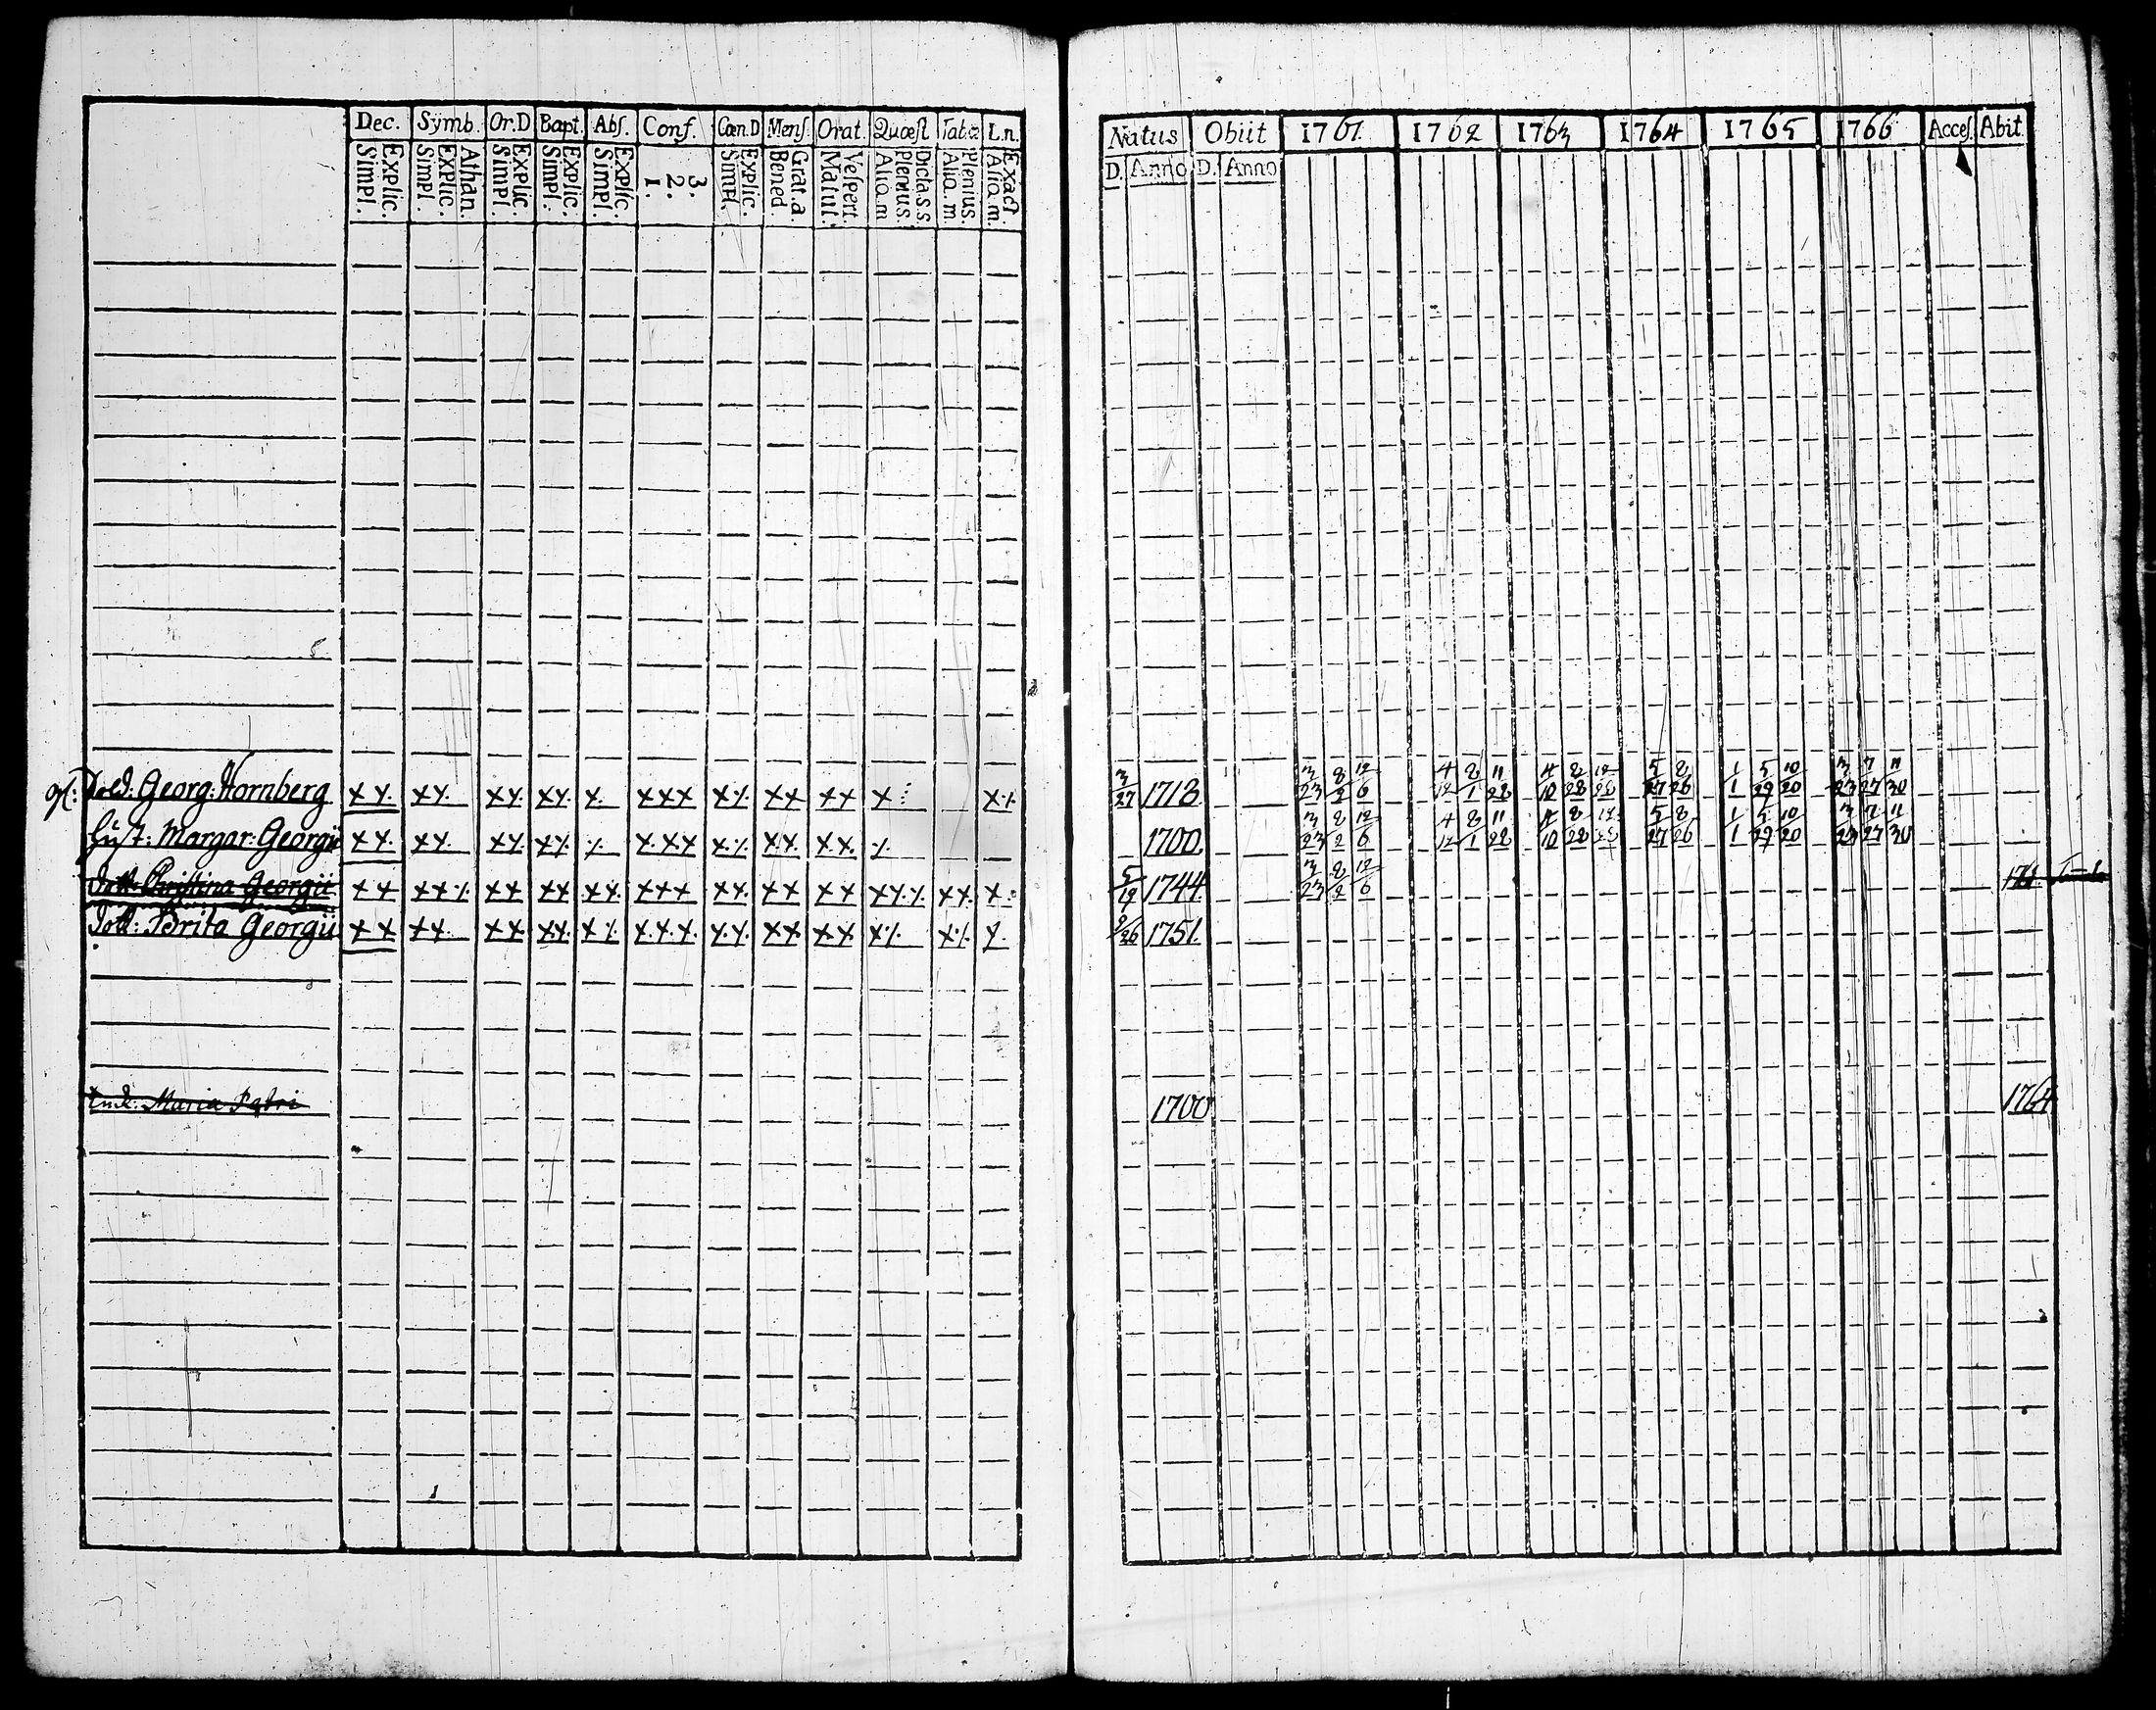 Dec. Symb. Or.D Bapt. Abſ. Conf. Cœn.D Menſ. Orat. Quœſt Tab.œ L.n.
Simpl. Explic. Simpl. Explic. Athan. Simpl. Explic. Simpl. Explic. Simpl. Explic. 1. 2. 3. Simpl. Explic. Bened. Grat.a Matut. Veſpert. Alio.m Plenius. Dicta.s.s. Alio.m Plenius. Alio.m. Exact
Georg. Hornberg x x. x x. x x. x x. x. x x x x ⁒ x x x x x : x ⁒
Hust: Margar: Georgii x x. x x. x x. x x. ⁒ x. x x x ⁒ x x. x x. ⁒
Dott: Christina Georgii x x x x ⁒ x x x x x x. x x x x x. x x x x x x. ⁒ x x. x :
Dott: Brita Georgii x x x x. x x x x. x ⁒ x. x. x. x. x. x x x x. x ⁒ x ⁒ x.
Enk: Maria Petri
Natus Obiit 1761. 1762 1763 1764 1765 1766 Acceſ. Abit.
D. Anno D. Anno
3/27 1718 3/23 8/2 12/6 4/12 8/1 11/28 4/10 8/28 5/27 8/26 1/1 5/29 10/20 3/23 7/27 11/30
1700. 3/23 8/2 12/6 4/12 8/1 11/28 4/10 8/28 5/27 8/26 1/1 5/29 10/20 3/23 7/27 11/30
5/19 1744. 3/23 8/2 12/6
9/26 1751.
1700 1764